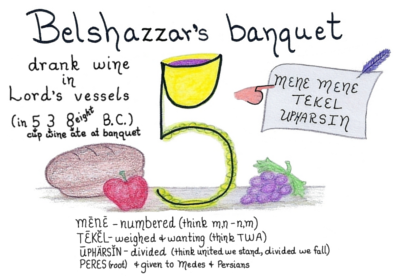 Belshazzar's banquet
drank wine
in
Lord's vessels
(in 5 3 8 eight B.C.)
cup wine ate at banquet
5
MENE MENE
TEKEL
UPHARSIN
mĕnē - numbered (think m,n - n,m)
TĒKĔL - weighed & wanting (think TWA)
ūPHärSĬN - divided (think united we stand, divided we fall)
PERES (root) & given to Medes & Persians